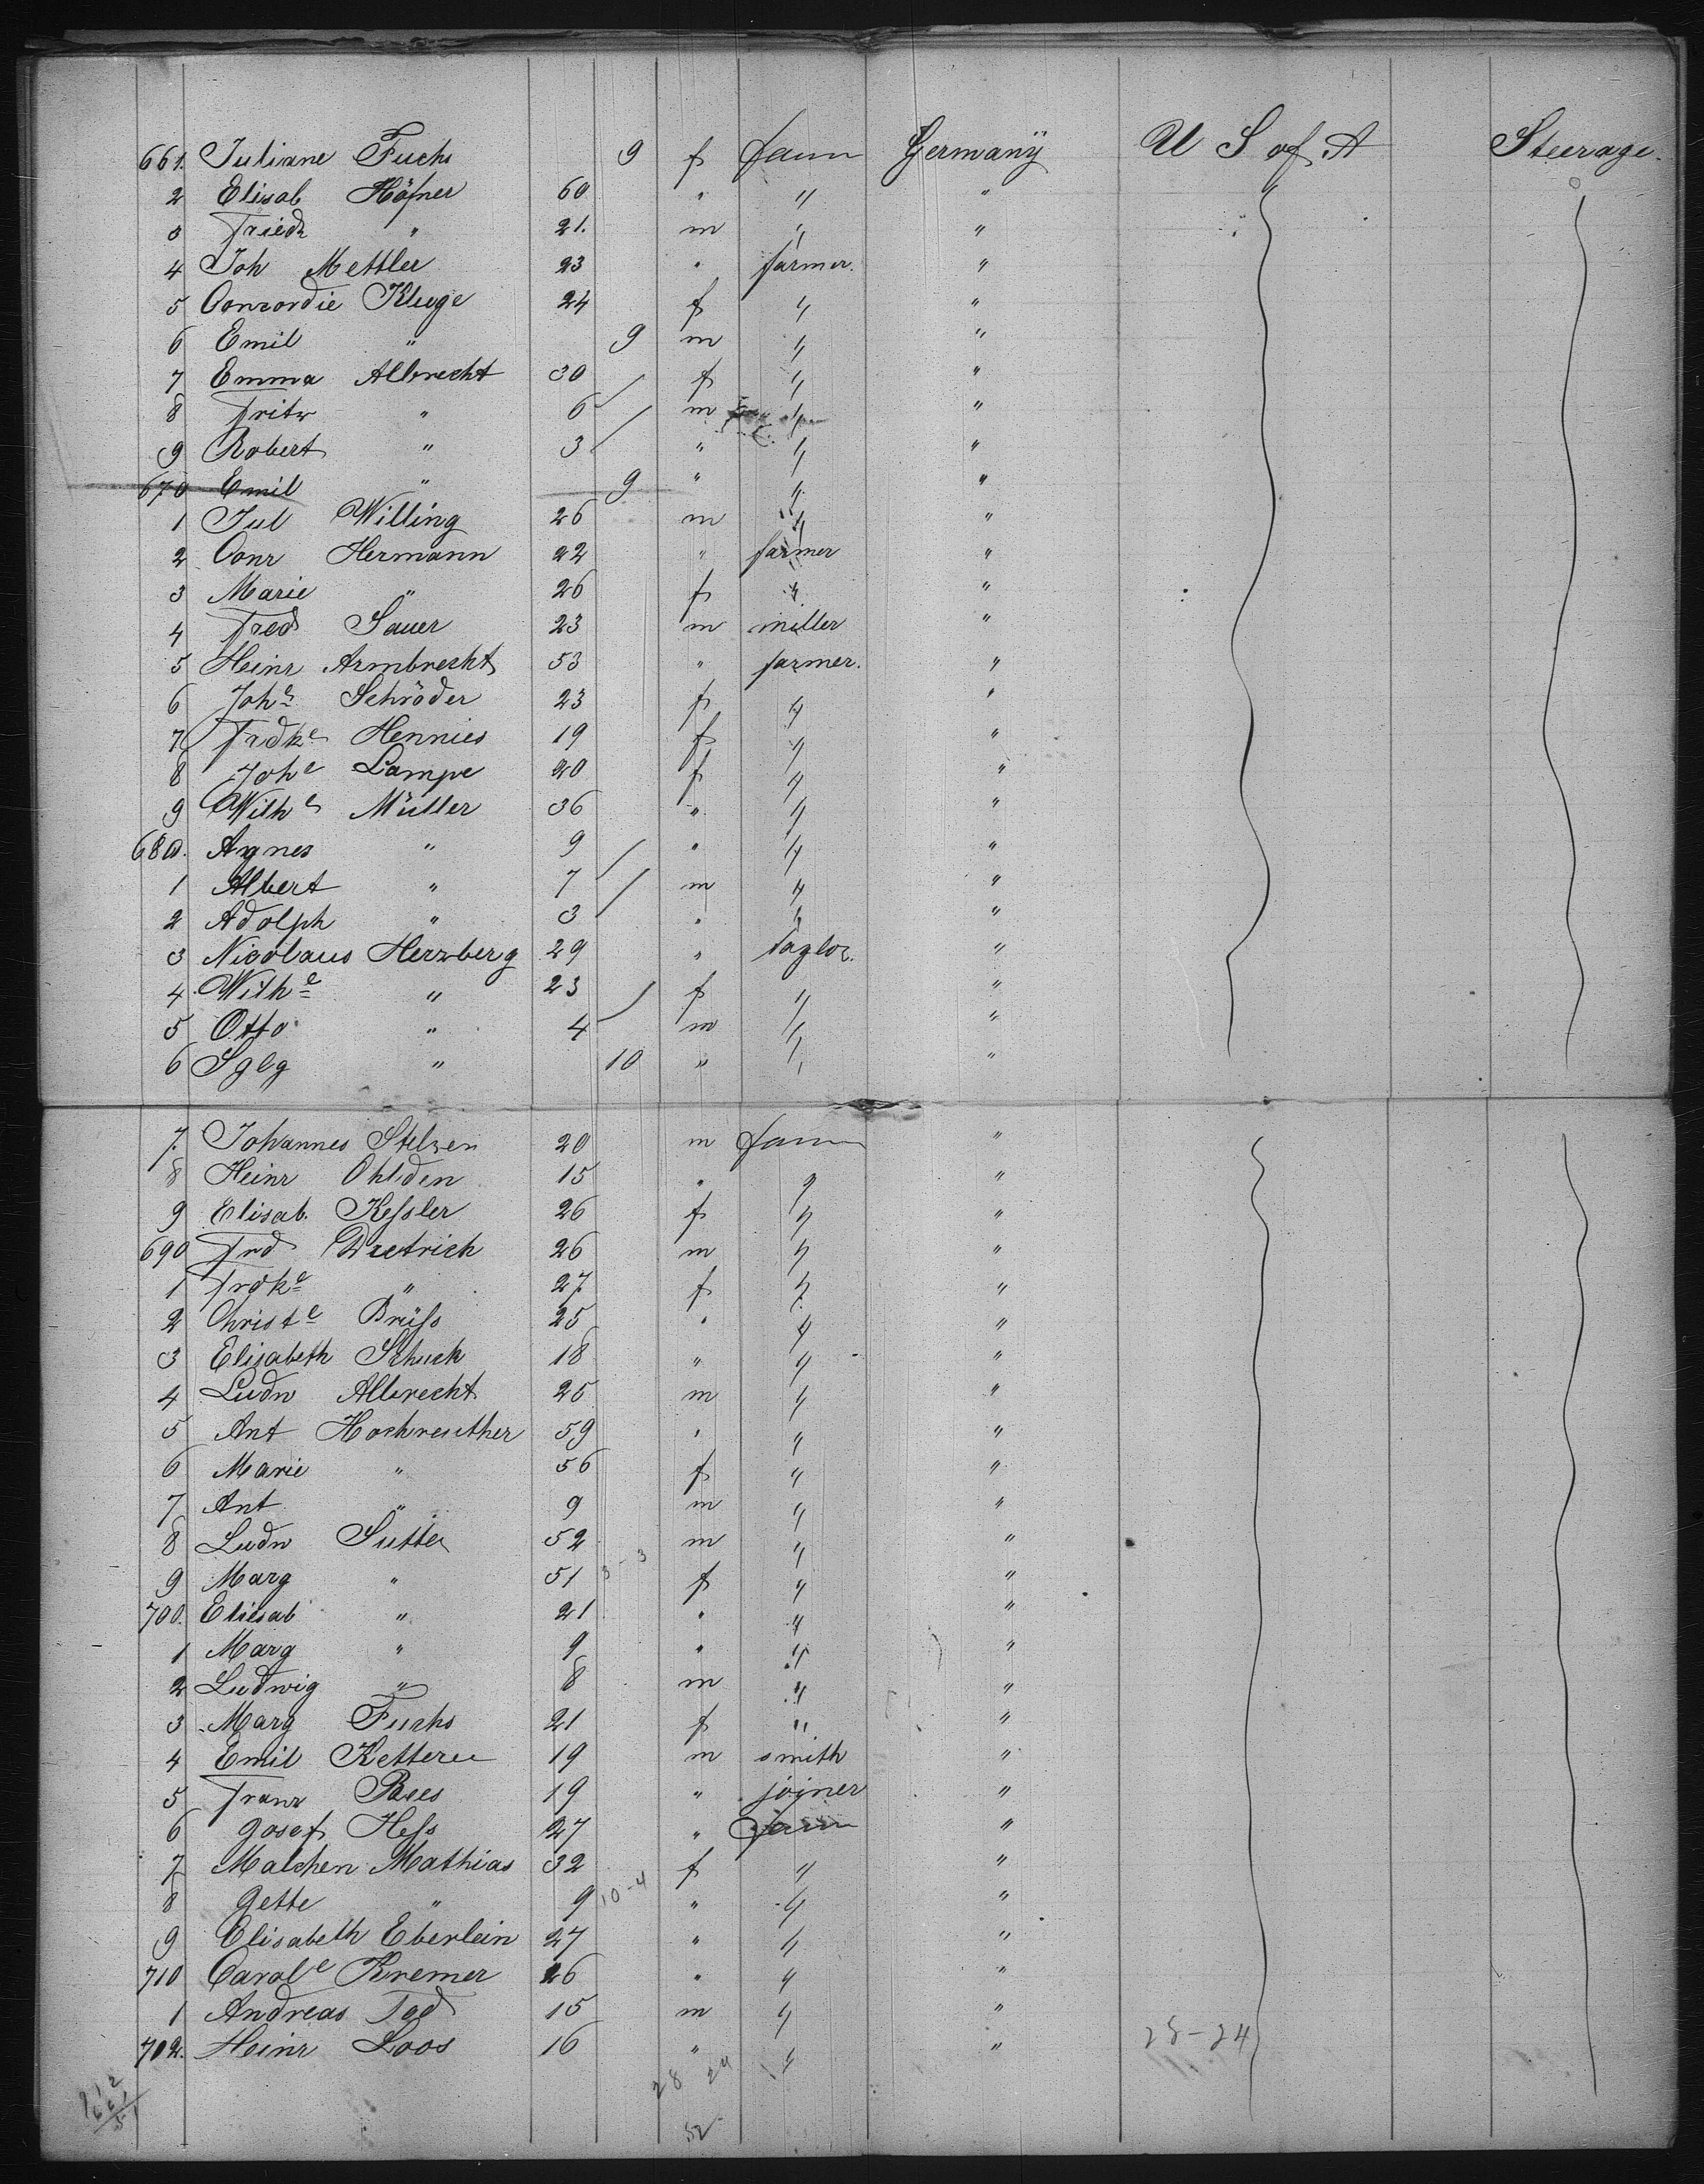 661. Juliane Fuchs 9 f farm Germany U S of A Steerage.
2 Elisab Höfner 60 " " "
3 Friedr " 21. m " "
4 Joh Mettler 23 " farmer. "
5 Concordie Kluge 24 f " "
6 Emil " 9 m " "
7 Emma Albrecht 30 f " "
8 Fritz " 6 m " "
9 Robert " 3 " " "
670 Emil " 9 " " "
1 Jul Willing 26 m " "
2 Conr Hermann 22 " farmer "
3 Marie " 26 f " "
4 Fred Sauer 23 m miller "
5 Heinr Armbrecht 53 " farmer. "
6 Johe Schröder 23 f " "
7 Frdke Hennies 19 f " "
8 Johe Lampe 20 f " "
9 Wilhe Müller 36 " " "
680. Agnes " 9 " " "
1 Albert " 7 m " "
2 Adolph " 3 " " "
3 Nicolaus Herzberg 29 " taylor. "
4 Wilhe " 23 f " "
5 Otto " 4 m " "
6 Sglg " 10 " " "
7. Johannes Stelzen 20 m farm "
8 Heinr Ohlden 15 " " "
9 Elisab. Keſsler 26 f " "
690 Frd Dietrich 26 m " "
1 Frdke " 27. f " "
2 Christe Brüſs 25 " " "
3 Elisabeth Schuck 18 " " "
4 Ludw Albrecht 25 m " "
5 Ant Hochreuther 59 " " "
6 Marie " 56 f " "
7 Ant " 9 m " "
8 Ludw Sutter 52 m " "
9 Marg " 51 3-3 f " "
700. Elisab " 21 " " "
1 Marg " 9 " " "
2 Ludwig " 8 m " "
3 Marg Fuchs 21 f " "
4 Emil Ketterer 19 m smith "
5 Franz Bees 19 " joiner "
6 Josef Heſs 27 " farm "
7 Malchen Mathias 32 f " "
8 Jette " 9 10-4 " " "
9 Elisabeth Eberlein 27 " " "
710 Carole Kremer 26 " " "
1 Andreas Tod 15 m " "
712. Heinr Loos 16 " " " 28-24
28 24
52